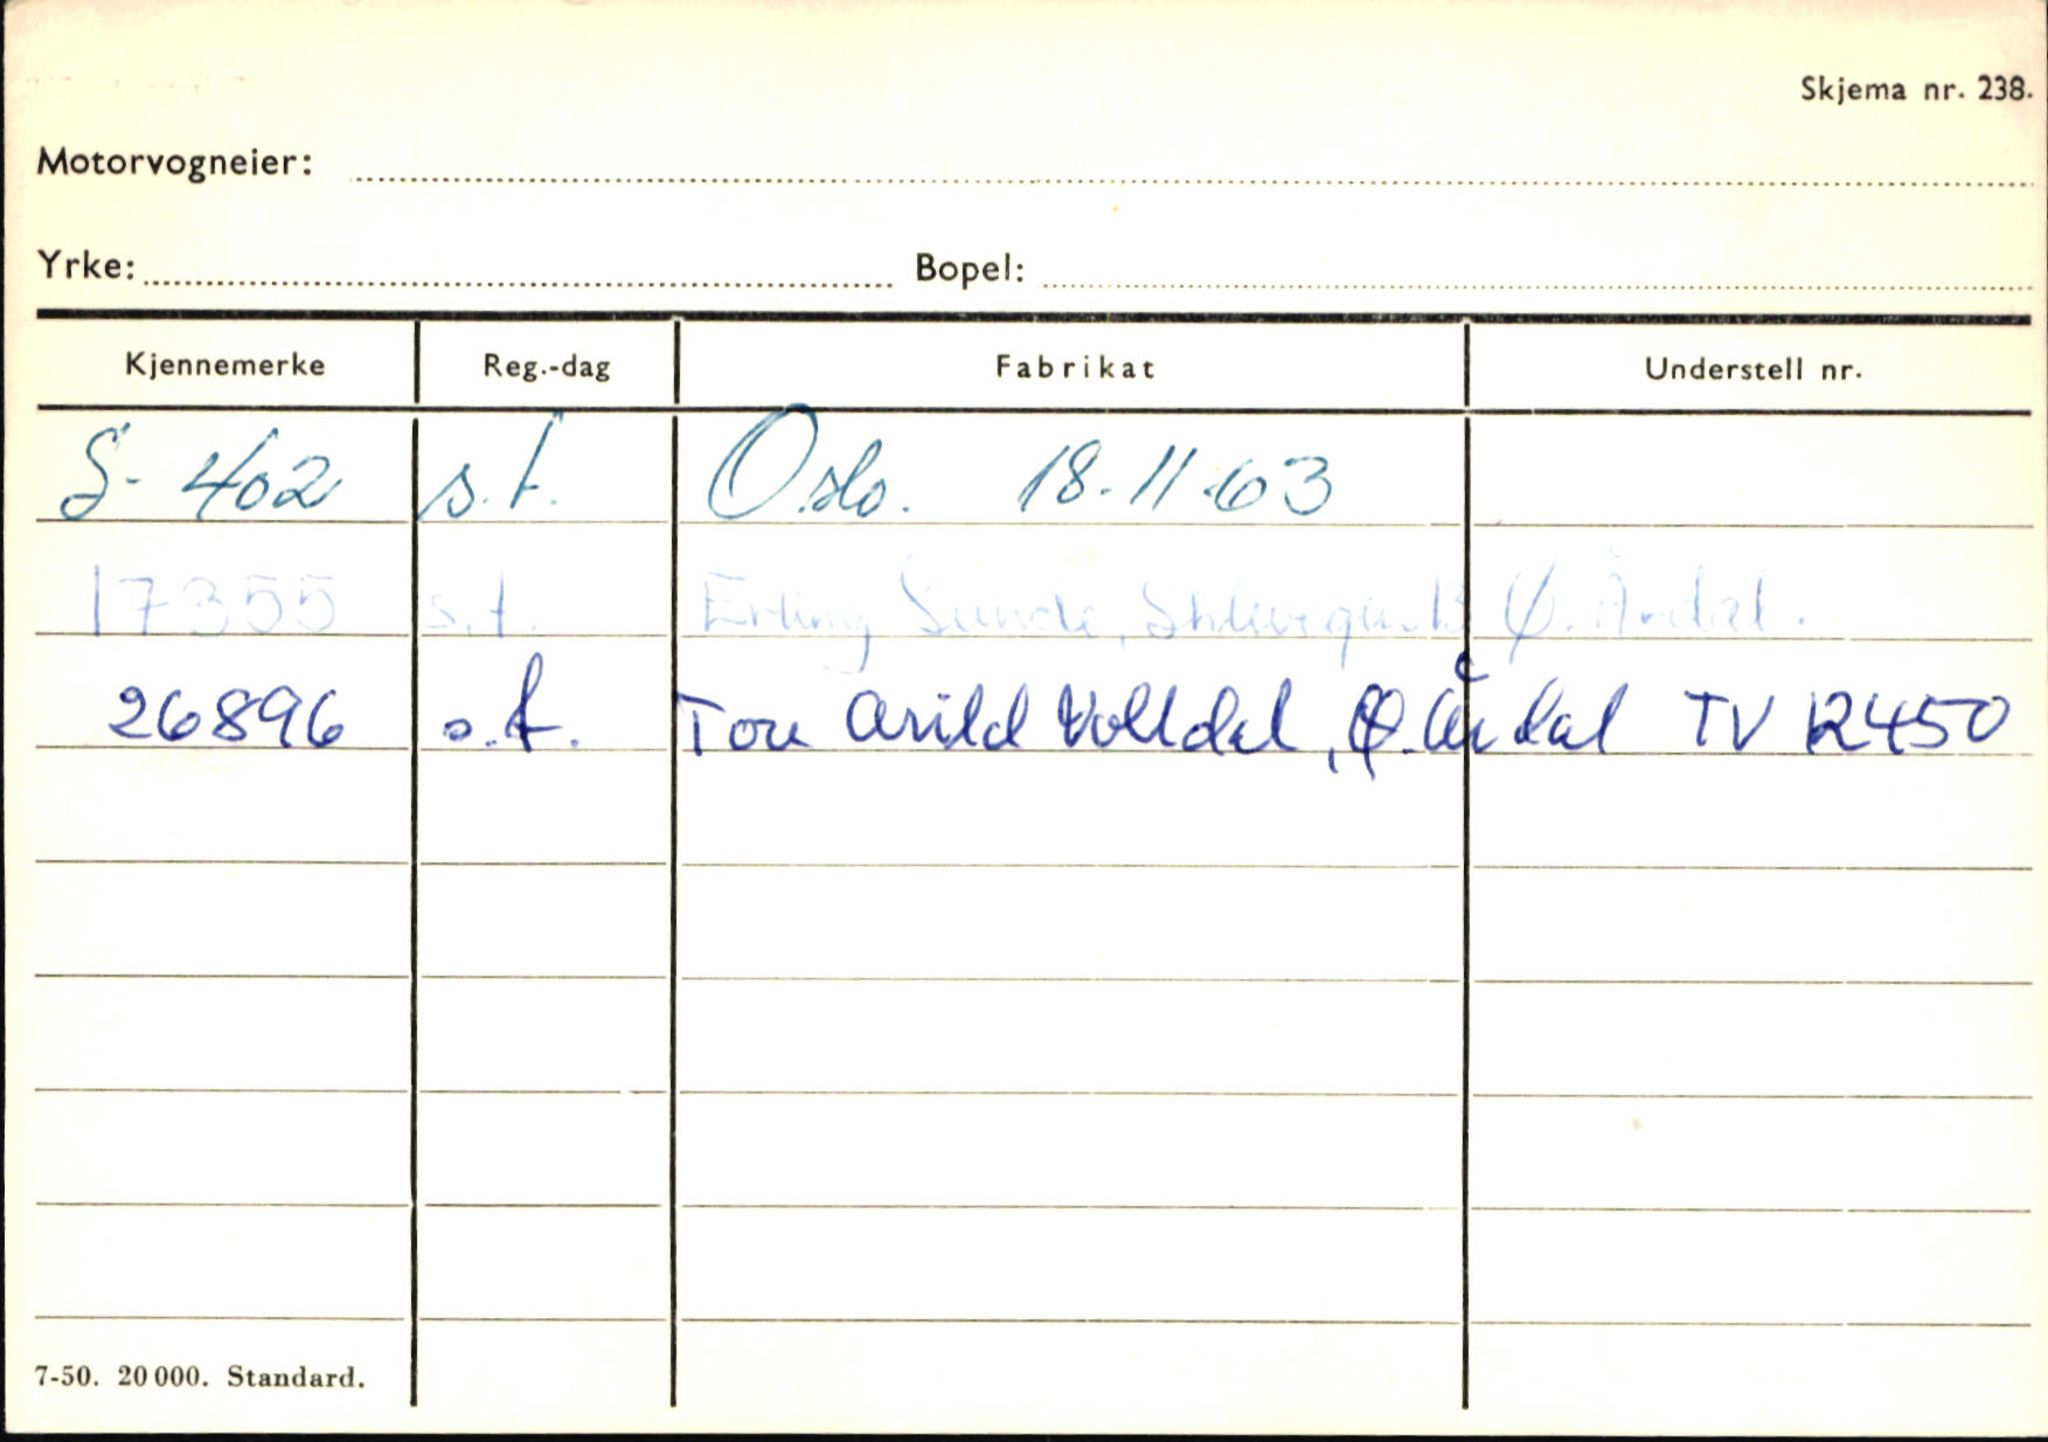 Skjema nr. 238.
Motorvogneier:
Yrke: Bopel:
Kjennemerke Reg.-dag Fabrikat Understell nr.
S-402 s.f. Oslo. 18.11.63
17355 s.f. Erling Sunde, Ø. Årdal.
26896 s.f. Tore Arild Volldal, Ø. Årdal TV 12450
7-50. 20 000. Standard.